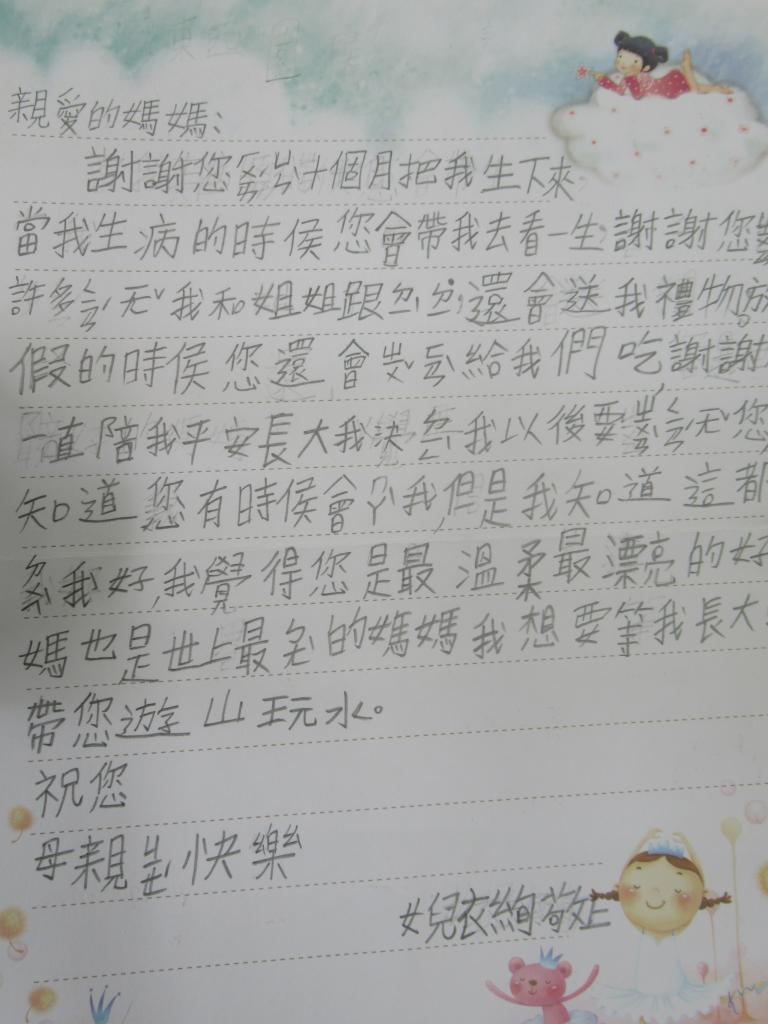 親愛的媽媽:
謝謝您ㄌㄠˊ十個月把我生下來
當我生病的時侯您會帶我去看一生,謝謝您
許多 我和姐姐跟ㄉ一ˋㄉ一˙,還會送我禮物。放
假的時侯您還會ㄓㄨˇㄉㄨㄥ給我們吃謝謝
一直陪我平安長大我決 我以後要 您,
知道您有時侯會ㄇㄚˋ我,但是我知道這都
我好,我覺得您是最溫柔最漂亮的好
媽也是世上最 的媽媽我想要等我長大
帶您遊山玩水。
祝您
母親ㄐㄧㄝˊ快樂
女兒衣絢敬上